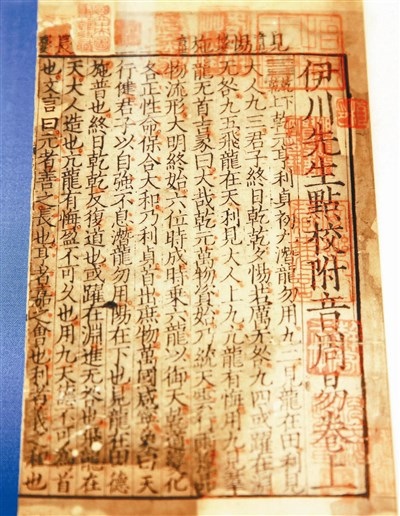 伊川先生點校附音周易卷上
下乾元亨利貞初九潛龍勿用九二見龍在田利見
大人九三君子終日乾乾夕惕若厲无咎九四或躍在淵
无咎九五飛龍在天利見大人上九亢龍有悔用九見羣
龍无首吉彖曰大哉乾元萬物資始乃統天雲行雨施品
物流形大明終始六位時成時乘六龍以御天乾道變化
各正性命保合大和乃利貞首出庶物萬國咸寧象曰天
行健君子以自強不息潛龍勿用陽在下也見龍在田德
施普也終日乾乾反復道也或躍在淵進无咎也飛龍在
天大人造也亢龍有悔盈不可久也用九天德不可爲首
也文言曰元者善之長也亨者嘉之會也利者義之和也